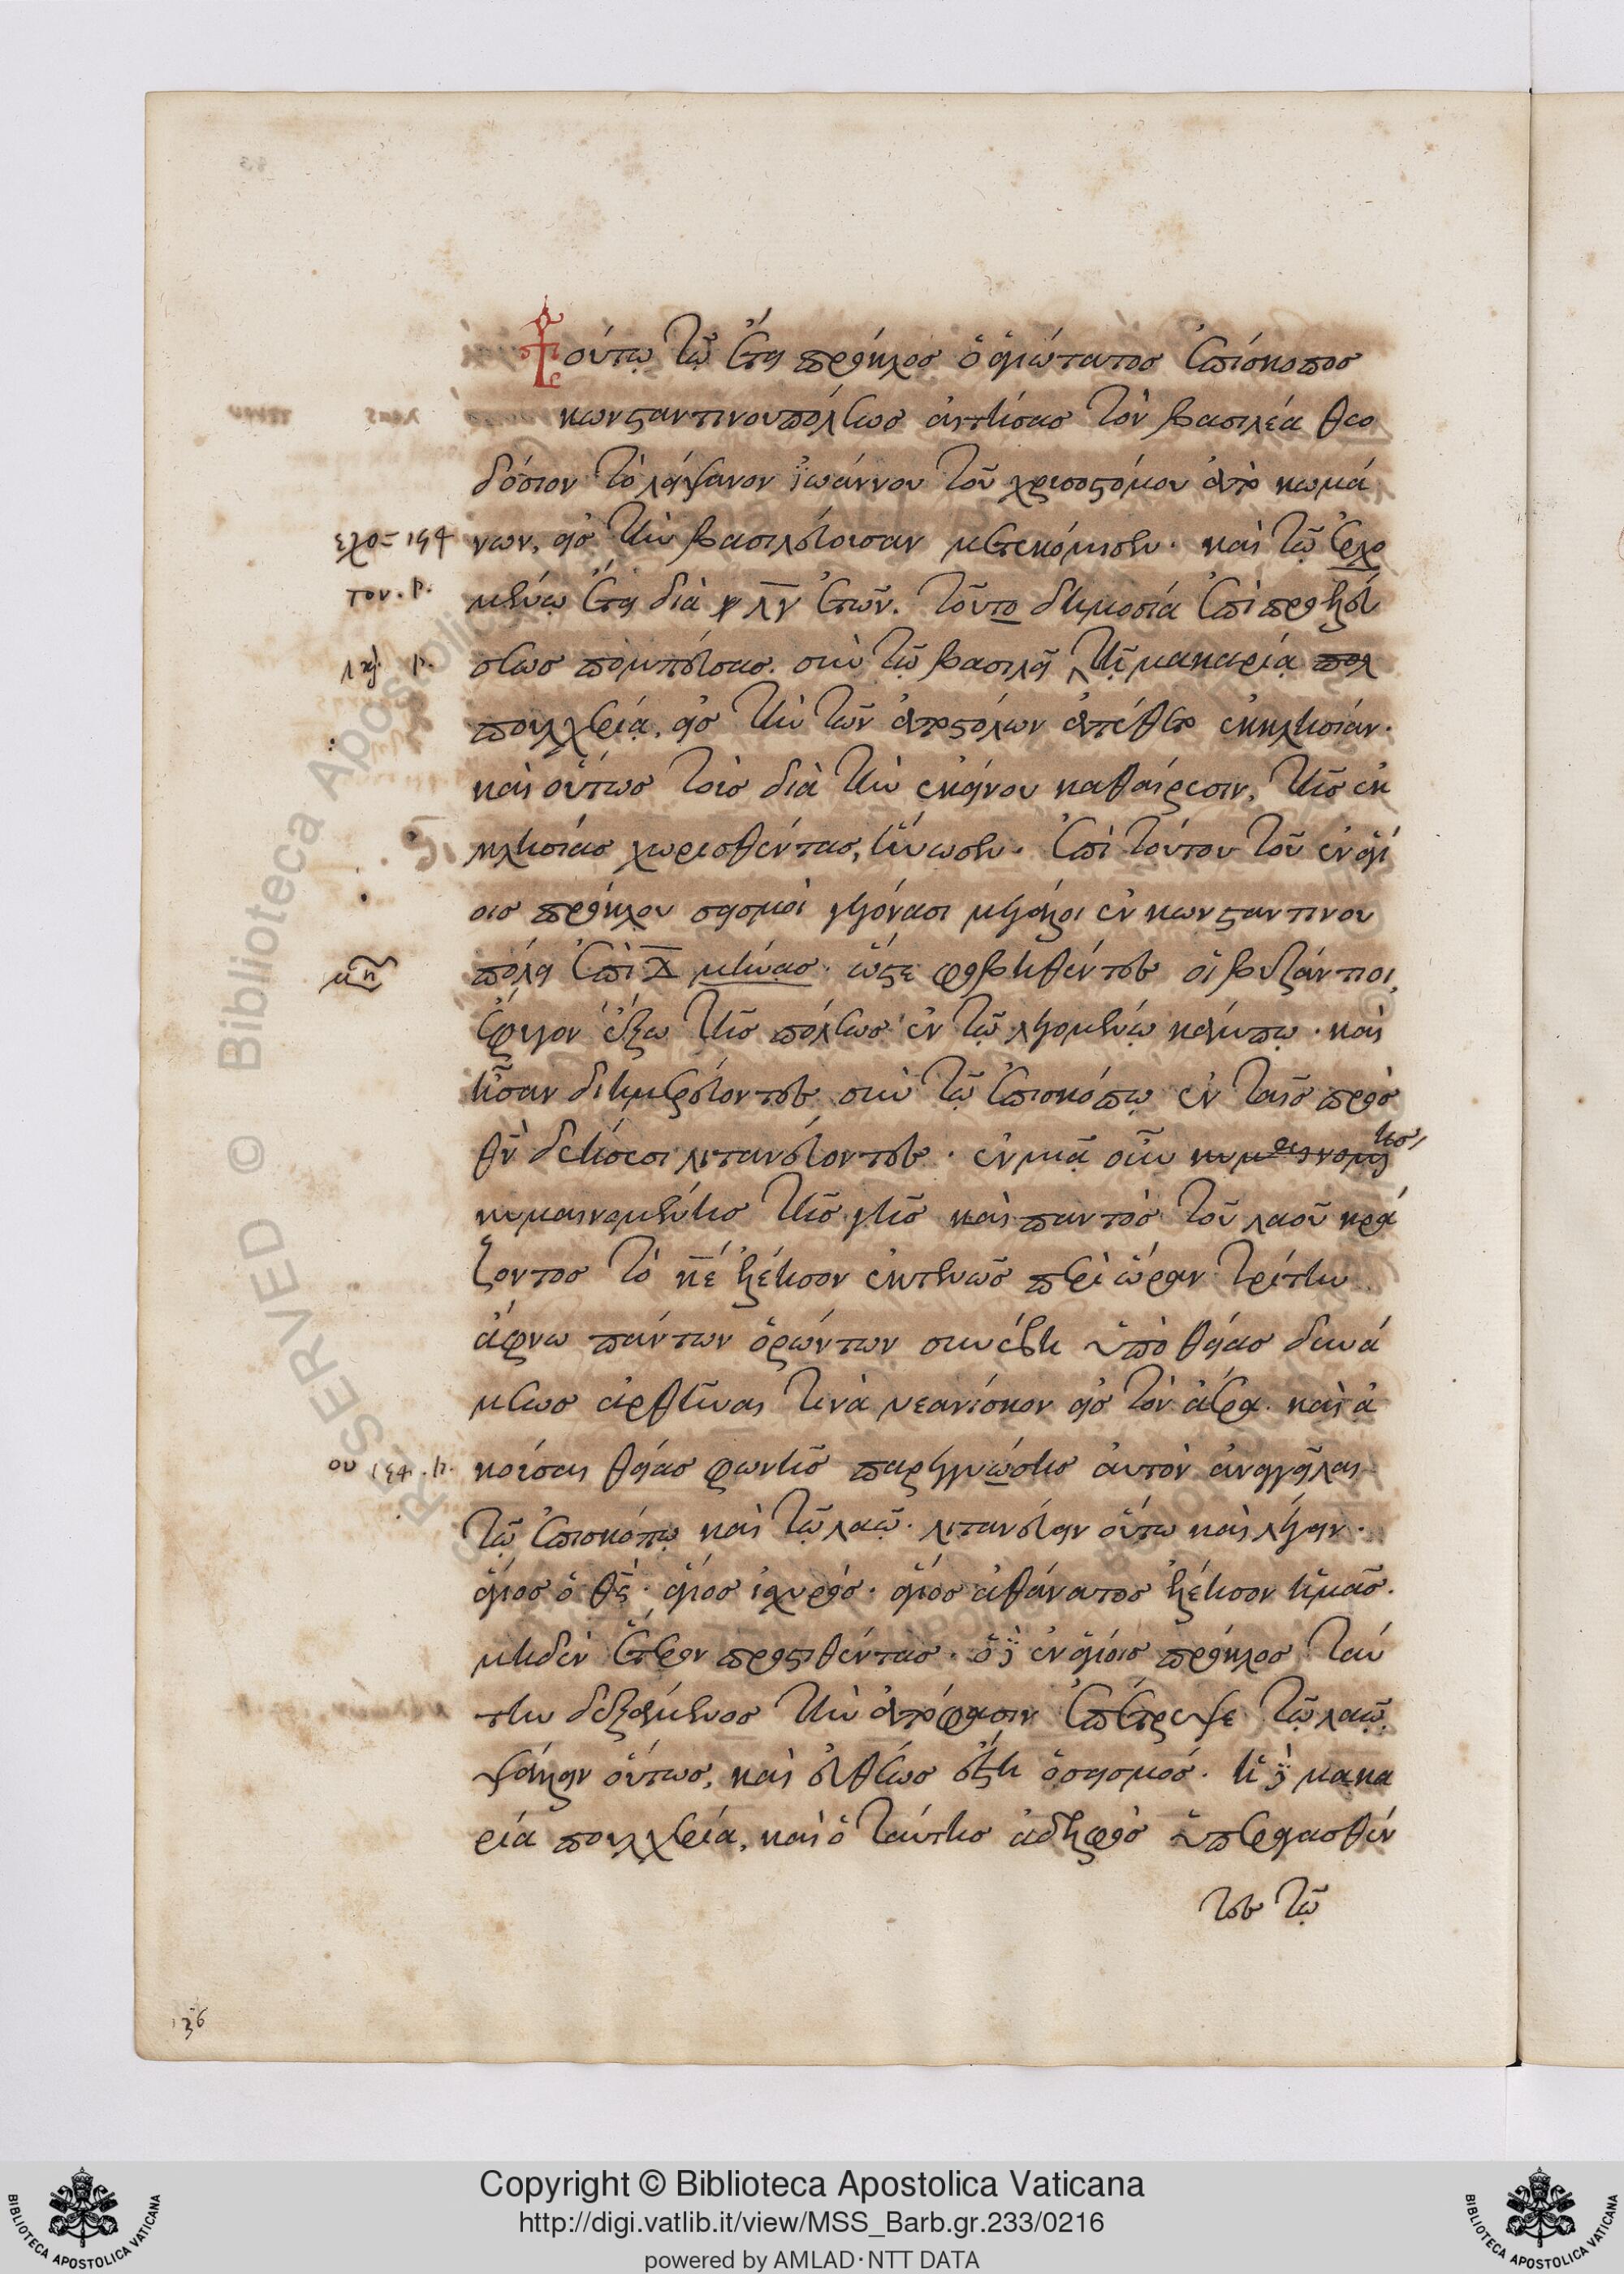 Τούτῳ τῷ ἔτει πρόκλος ὁ ἁγιώτατος ἐπίσκοπος
κωνσταντινουπόλεως αἰτήσας τὸν βασιλέα θεο
δόσιον τὸ λείψανον ἰωάννου τοῦ χρυσοστόμου ἀπὸ κομά
νων, εἰς τὴν βασιλεύουσαν μετεκόμισεν. καὶ τῷ ἐρχο
μένῳ ἔτει διὰ λγ ἐτῶν. τοῦτο δημοσίᾳ ἐπὶ προελεύ
σεως πομπεύσας σὺν τῷ βασιλεῖ τῇ μακαρίᾳ πολ
πουλχερίᾳ, εἰς τὴν τῶν ἀποστόλων ἀπέθετο ἐκκλησίαν.
καὶ οὕτως τοὺς διὰ τὴν ἐκείνου καθαίρεσιν, τῆς ἐκ
κλησίας χωρισθέντας, ἥνωσεν. ἐπὶ τούτου τοῦ ἐν ἁγί
οις πρόκλου σεισμοὶ γεγόνασι μεγάλοι ἐν κωνσταντινου
πόλει ἐπὶ δ μῆνας. ὥστε φοβηθέντες οἱ βυζάντιοι,
ἔφυγον ἔξω τῆς πόλεως ἐν τῷ λεγομένῳ κάμπῳ. καὶ
ἦσαν διημερεύοντες σὺν τῷ ἐπισκόπῳ ἐν ταῖς πρὸς
θν δεήσεσι λιτανεύοντες. ἐν μιᾷ οὖν
κυμαινομένης τῆς γῆς καὶ παντὸς τοῦ λαοῦ κρά
ζοντος τὸ κε ἐλέησον ἐκτενῶς περὶ ὥραν τρίτην
ἄφνω πάντων ὁρώντων συνέβη ὑπὸ θείας δυνά
μεως ἀρθῆναι τινὰ νεανίσκον εἰς τὸν ἀέρα. καὶ ἀ
κοῦσαι θείας φωνῆς παρεγγυώσης αὐτὸν ἀναγγεῖλαι
τῷ ἐπισκόπῳ καὶ τῷ λαῷ. λιτανεύειν οὕτω καὶ λέγειν.
ἅγιος ὁ θς. ἅγιος ἰσχυρός. ἅγιος ἀθάνατος ἐλέησον ἡμᾶς.
μηδὲν ἕτερον προστιθέντας. ὁ δὲ ἐν ἁγίοις πρόκλος ταύ
την δεξάμενος τὴν ἀπόφασιν ἐπέτρεψε τῷ λαῷ
ψάλλειν οὕτως, καὶ εὐθέως ἔστη ὁ σεισμός. ἡ δὲ μακα
ρία πουλχερία, καὶ ὁ ταύτης ἀδελφὸς ὑπεραγασθέν
τες τῷ
136
Copyright © Biblioteca Apostolica Vaticana
http://digi.vatlib.it/view/MSS_Barb.gr.233/0216
powered by AMLAD·NTT DATA
BIBLIOTECA APOSTOLICA VATICANA
BIBLIOTECA APOSTOLICA VATICANA